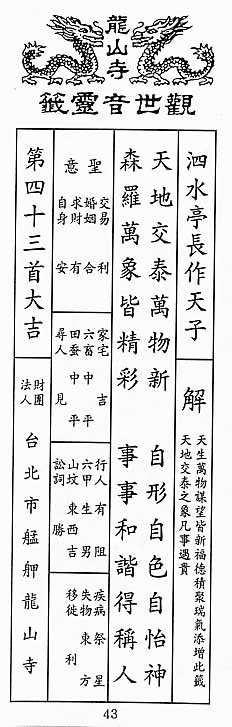 龍山寺
觀世音靈籤
泗水亭長作天子
解
天生萬物謀望皆新福德積聚瑞氣添增此籤
天地交泰之象凡事遇貴
天地交泰萬物新　自形自色自怡神
森羅萬象皆精彩　事事和諧得稱人
聖意
交易　利
婚姻　合
求財　有
自身　安
家宅　吉
六畜　中平
田蚕　中平
尋人　見
行人　有阻
六甲　生男
山坟　東西吉
訟詞　勝
疾病　祭星
失物　東方
移徙　利
第四十三首大吉
財團法人　台北市艋舺龍山寺
43